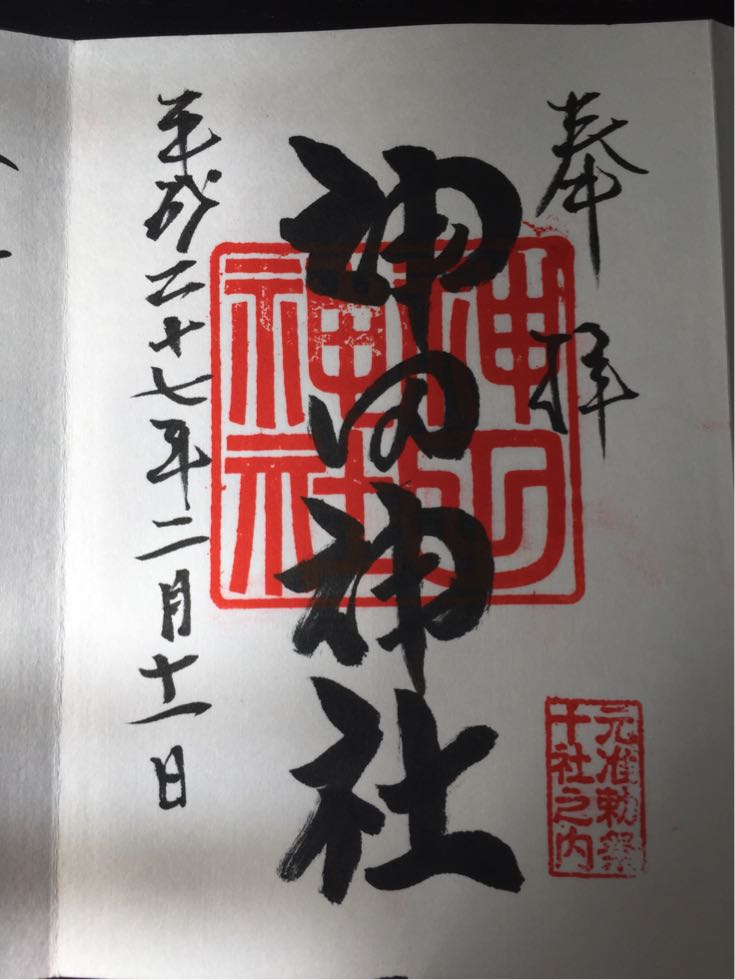 奉拝
神田神社
神田
神社
元准勅祭
十社之内
平成二十七年二月十一日